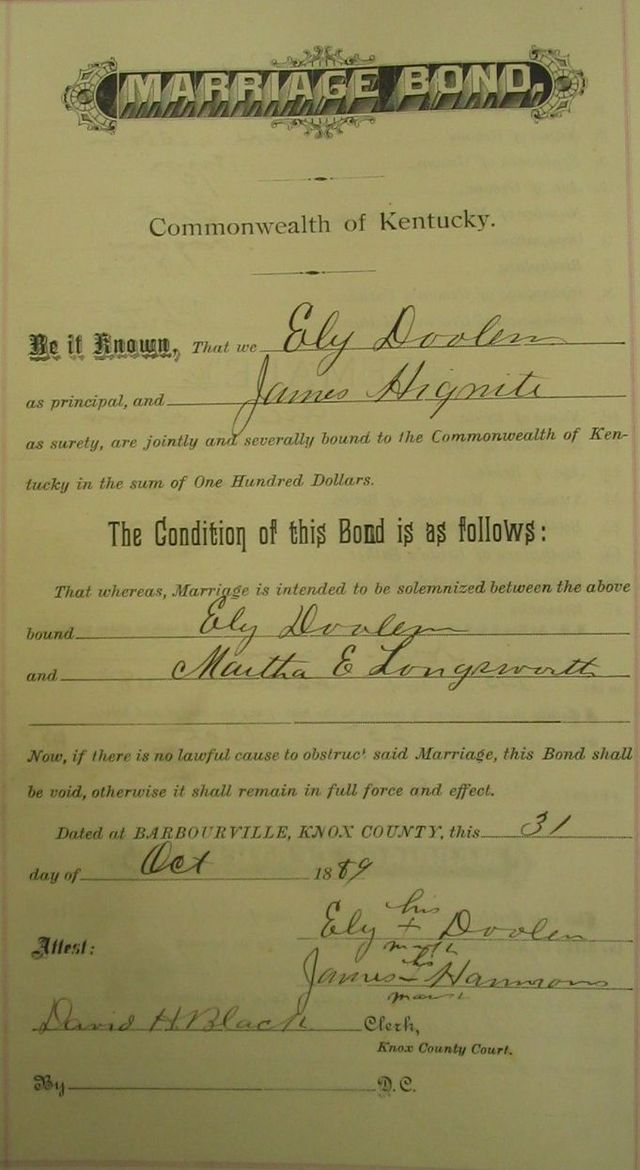 MARRIAGE BOND,
Commonwealth of Kentucky.
Be it Known, That we Ely Doolen
as principal, and James Hignite
as surety, are jointly and severally bound to the Commonwealth of Ken-
tucky in the sum of One Hundred Dollars.
The Condition of this Bond is as follows:
That whereas, Marriage is intended to be solemnized between the above
bound Ely Doolen
and Martha E Longsworth
Now, if there is no lawful cause to obstruct said Marriage, this Bond shall
be void, otherwise it shall remain in full force and effect.
Dated at BARBOURVILLE, KNOX COUNTY, this 31
day of Oct 1889
his
Ely + Doolen
Attest: mark
his
James Hammons
mark
David H Black Clerk,
Knox County Court.
By D.C.